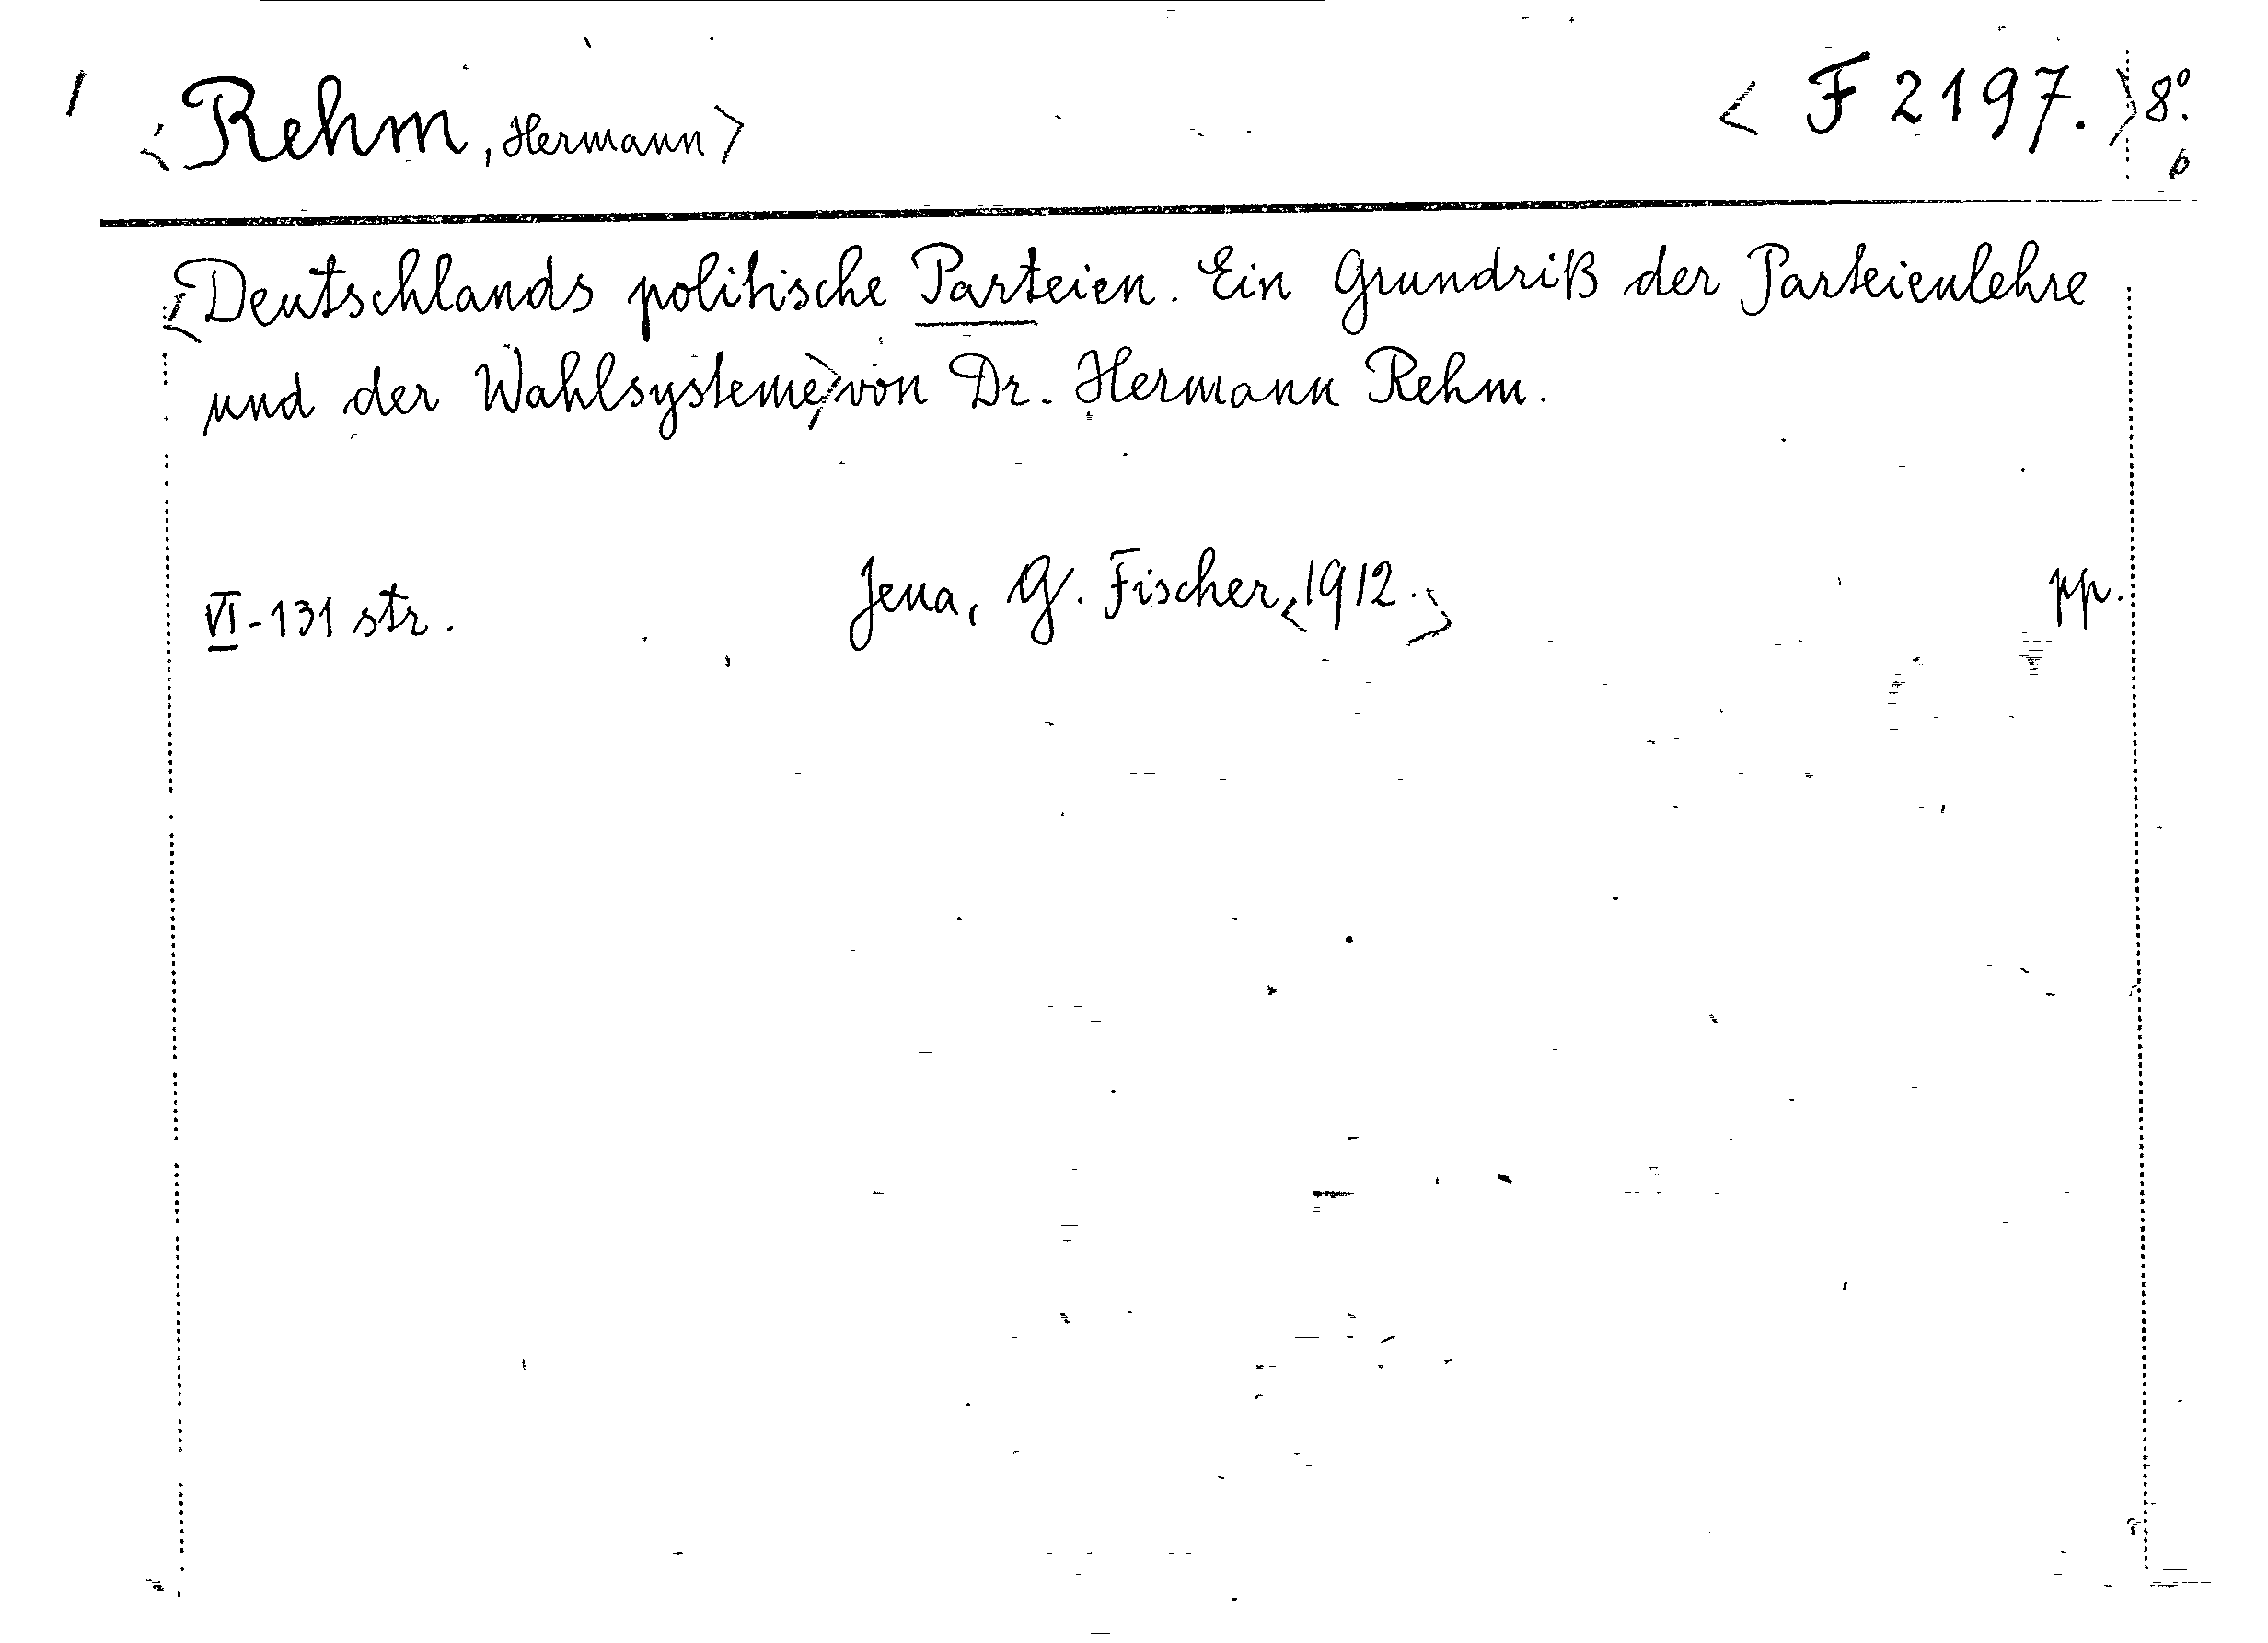 <Rehm, Hermann> < F 2197. > 8º.
b
<Deutschlands politische Parteien. Ein Grundriß der Parteienlehre
und der Wahlsysteme> von Dr. Hermann Rehm.
VI-131 str. Jena, G. Fischer, <1912.> pp.